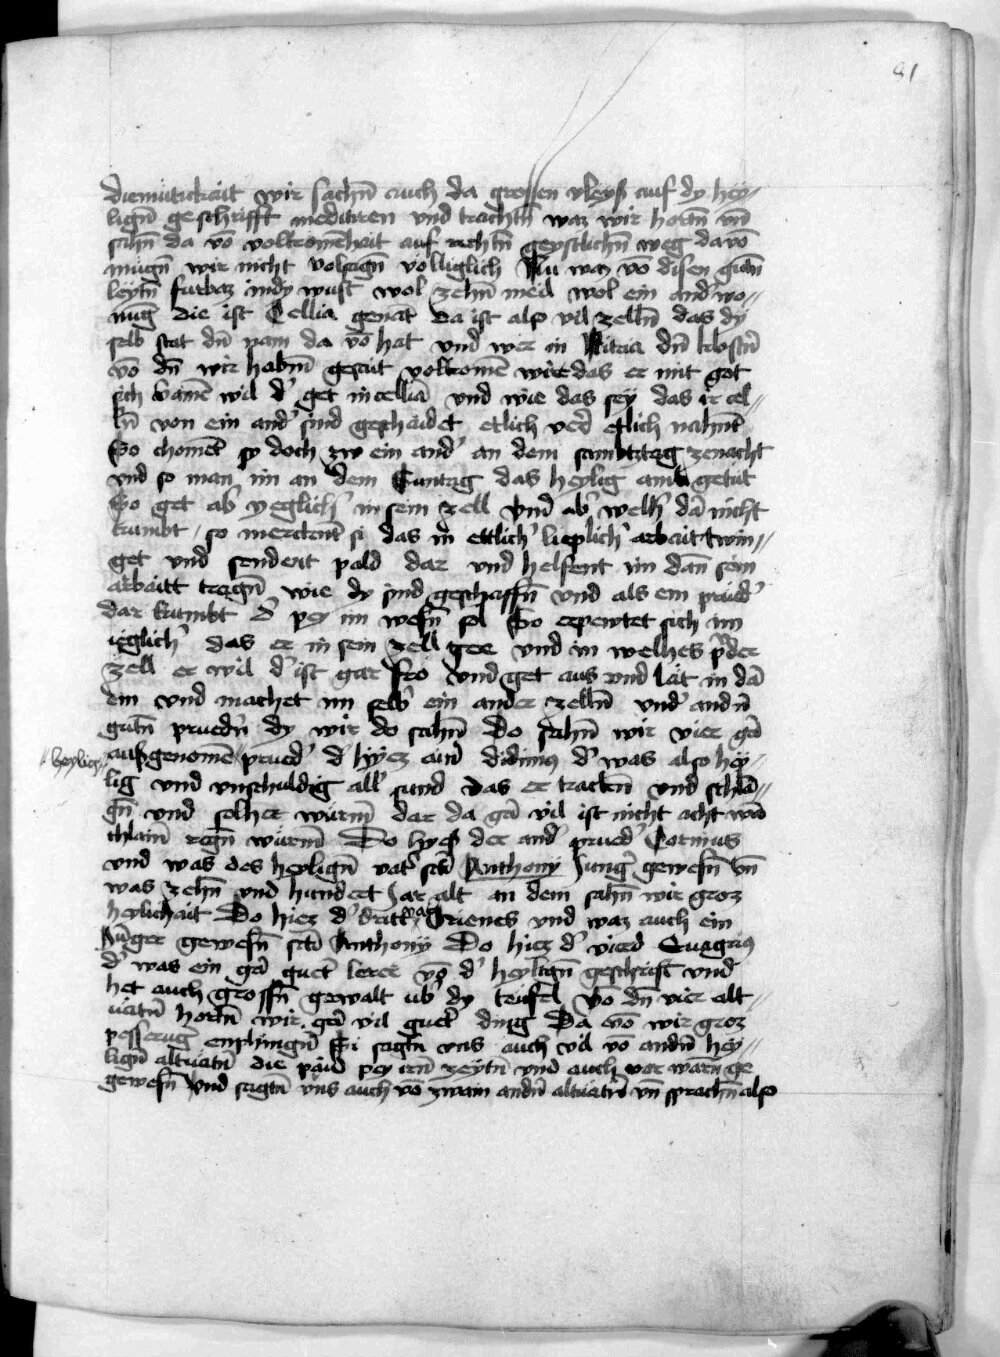 81
diemütickait wir sachn̄ auch da grossen vleyß auf dy hey⸗
lign̄ geschrifft meditiren vnd trachtn̄ waz wir hortn̄ vn̄
sahn̄ da vō volkomēhait auf rechtn̄ geystlichn̄ weg davō
mügn̄ wir nicht volsagn̄ völliglich Nu waz vō disen
leytn̄ furbaz indy wüst wol zehn̄ meil wol ein and' wo⸗
nūg die ist Cellia genāt da ist also vil zelln̄ das dy
selb stat dn̄ nam da vō hat vnd wer in Nitria dn̄
vō dn̄ wir habn̄ gesait volkomē wirt das er mit got
sich ainē wil d' get in celliā vnd wie das sey das ir cel⸗
ln̄ von ein and' sind geschaidet etlich verr etlich nahnt
So chomēt sy doch zw ein and' an dem sambtztag zenacht
vnd so man im an dem Suntag das heylig ambt getüt
So get ab' yeglich' in sein zell Vnd ab' welh' dā nicht
kumbt so merckent si das in ettlich' lieplich' arbait twin⸗
get vnd sendent pald dar vnd helfent im dān sein
arbaitt tragn̄ wie dy sind geschaffn̄ vnd als ein prüd'
dar kumbt d' pey im wesn̄ sol So erpewtet sich im
iglich' das er in sein zell gee vnd in welhes prder
zell er wil d' ist gar fro vnd get aus vnd lāt in dā
ein vnd machet im selb' ein ander zelln̄ vnd' andn̄
gutn̄ pruedn̄ dy wir do sahn̄ Do sahn̄ wir vier gā
heylig
außgenomē prüed' d' hyez ain' didimus d' was also hey⸗
lig vnd vnschuldig all' sund das er tracken vnd schlā⸗
gn̄ vnd solher würm̄ dar da gā vil ist nicht acht wān
chlain̄ regn̄ würm̄ Do hyeß der and' prued' Cornius
vnd was des heylign̄ vat' sctī Anthony Jung' gewesn̄ vn̄
was zehn̄ vnd hundert Jar alt an dem sahn̄ wir groz
heylichait Do hiez d' dritt Orienes vnd waz auch ein
Jūger gewesn̄ sctī Anthonÿ Do hiez d' vierd Euagrius
d' was ein gā guet' lerer vō d' heylign̄ geschrift vnd
het auch grossn̄ gewalt üb' dy teüfel Vo dn̄ vier alt⸗
vātn̄ hortn̄ wir gā vil guet' ding Da vō wir groz
pesserūg enphingn̄ Si sagtn̄ vns auch vil vō andn̄ hey⸗
lign̄ altvātn̄ die paid pey irn̄ zeytn̄ vnd auch vor warn̄ ge
gewesn̄ Vnd sagtn̄ vns auch vō zwain andn̄ altvātn̄ vn̄ sprachn̄ also